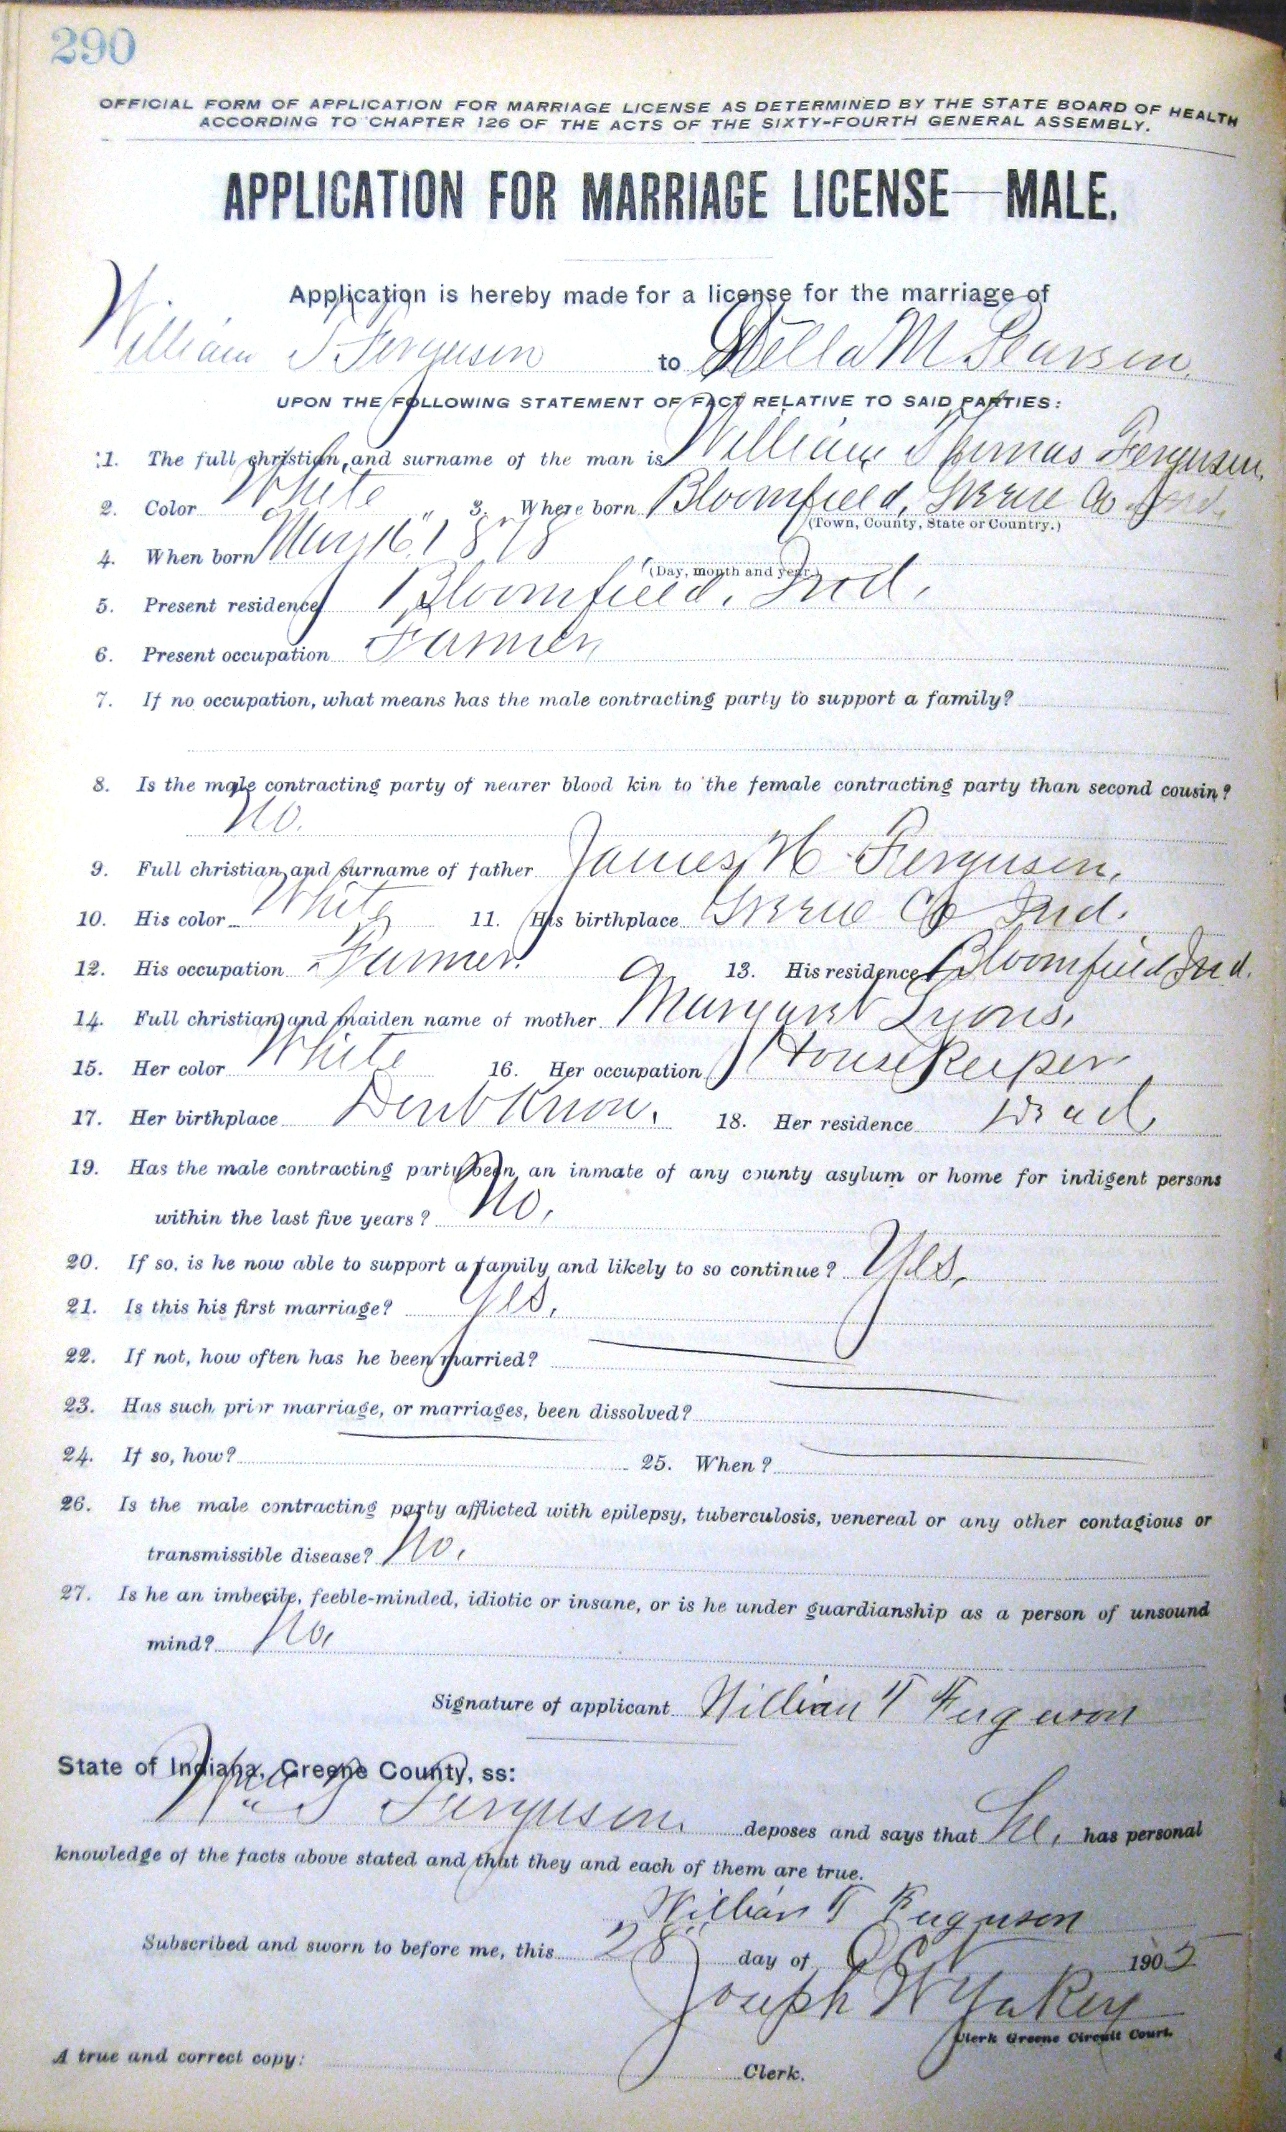 290
OFFICIAL FORM OF APPLICATION FOR MARRIAGE LICENSE AS DETERMINED BY THE STATE BOARD OF HEALTH
ACCORDING TO CHAPTER 126 OF THE ACTS OF THE SIXTY-FOURTH GENERAL ASSEMBLY.
APPLICATION FOR MARRIAGE LICENSE—MALE.
Application is hereby made for a license for the marriage of
William T Ferguson to Stella M Pearson.
UPON THE FOLLOWING STATEMENT OF FACT RELATIVE TO SAID PARTIES:
1. The full christian and surname of the man is William Thomas Ferguson.
2. Color White 3. Where born Bloomfield, Greene Co Ind.
(Town, County, State or Country.)
4. When born May 16" 1878
(Day, month and year.)
5. Present residence Bloomfield, Ind.
6. Present occupation Farmer
7. If no occupation, what means has the male contracting party to support a family?
8. Is the male contracting party of nearer blood kin to the female contracting party than second cousin?
No.
9. Full christian and surname of father James H Ferguson,
10. His color White 11. His birthplace Greene Co Ind.
12. His occupation Farmer. 13. His residence Bloomfield Ind.
14. Full christian and maiden name of mother Margaret Lyons,
15. Her color White 16. Her occupation House Keeper
17. Her birthplace Dont Know. 18. Her residence Dead,
19. Has the male contracting party been an inmate of any county asylum or home for indigent persons
within the last five years? No,
20. If so, is he now able to support a family and likely to so continue? Yes,
21. Is this his first marriage? Yes,
22. If not, how often has he been married?
23. Has such prior marriage, or marriages, been dissolved?
24. If so, how? 25. When?
26. Is the male contracting party afflicted with epilepsy, tuberculosis, venereal or any other contagious or
transmissible disease? No,
27. Is he an imbecile, feeble-minded, idiotic or insane, or is he under guardianship as a person of unsound
mind? No,
Signature of applicant William T Ferguson
State of Indiana, Greene County, ss:
Wm T Ferguson. deposes and says that he, has personal
knowledge of the facts above stated and that they and each of them are true.
William T Ferguson
Subscribed and sworn to before me, this 28" day of Oct 1905
Joseph W Yakey
Clerk Greene Circuit Court.
A true and correct copy: Clerk.